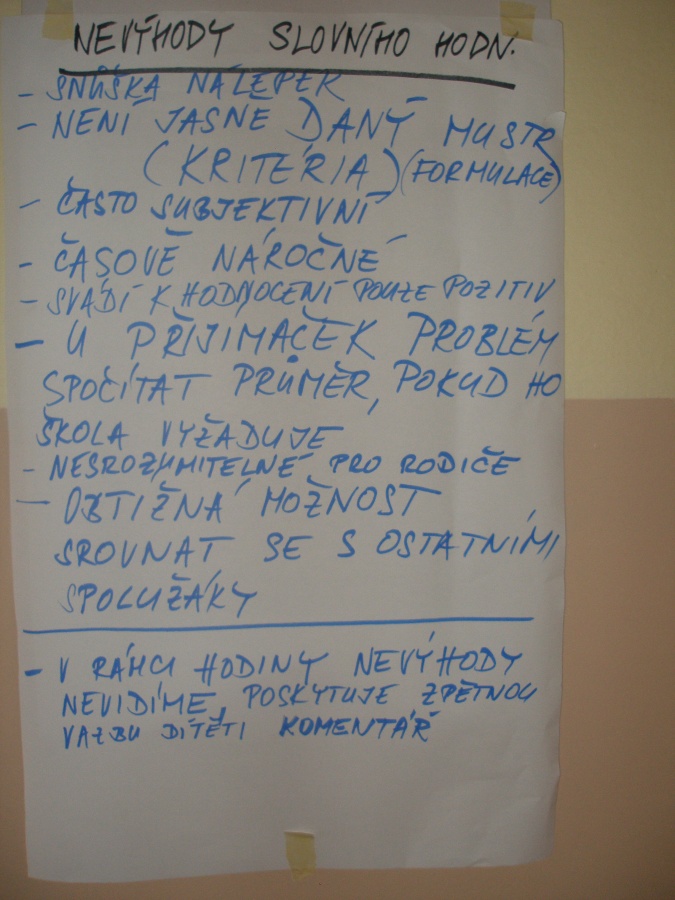 NEVÝHODY SLOVNÍHO HODN.
- SNŮŠKA NÁLEPEK
- NENÍ JASNĚ DANÝ MUSTR
(KRITÉRIA) (FORMULACE)
- ČASTO SUBJEKTIVNÍ
- ČASOVĚ NÁROČNÉ
- SVÁDÍ K HODNOCENÍ POUZE POZITIV
- U PŘÍJIMAČEK PROBLÉM
SPOČÍTAT PRŮMĚR, POKUD HO
ŠKOLA VYŽADUJE
- NESROZUMITELNÉ PRO RODIČE
- OBTÍŽNÁ MOŽNOST
SROVNAT SE S OSTATNÍMI
SPOLUŽÁKY
- V RÁMCI HODINY NEVÝHODY
NEVIDÍME, POSKYTUJE ZPĚTNOU
VAZBU DÍTĚTI KOMENTÁŘ